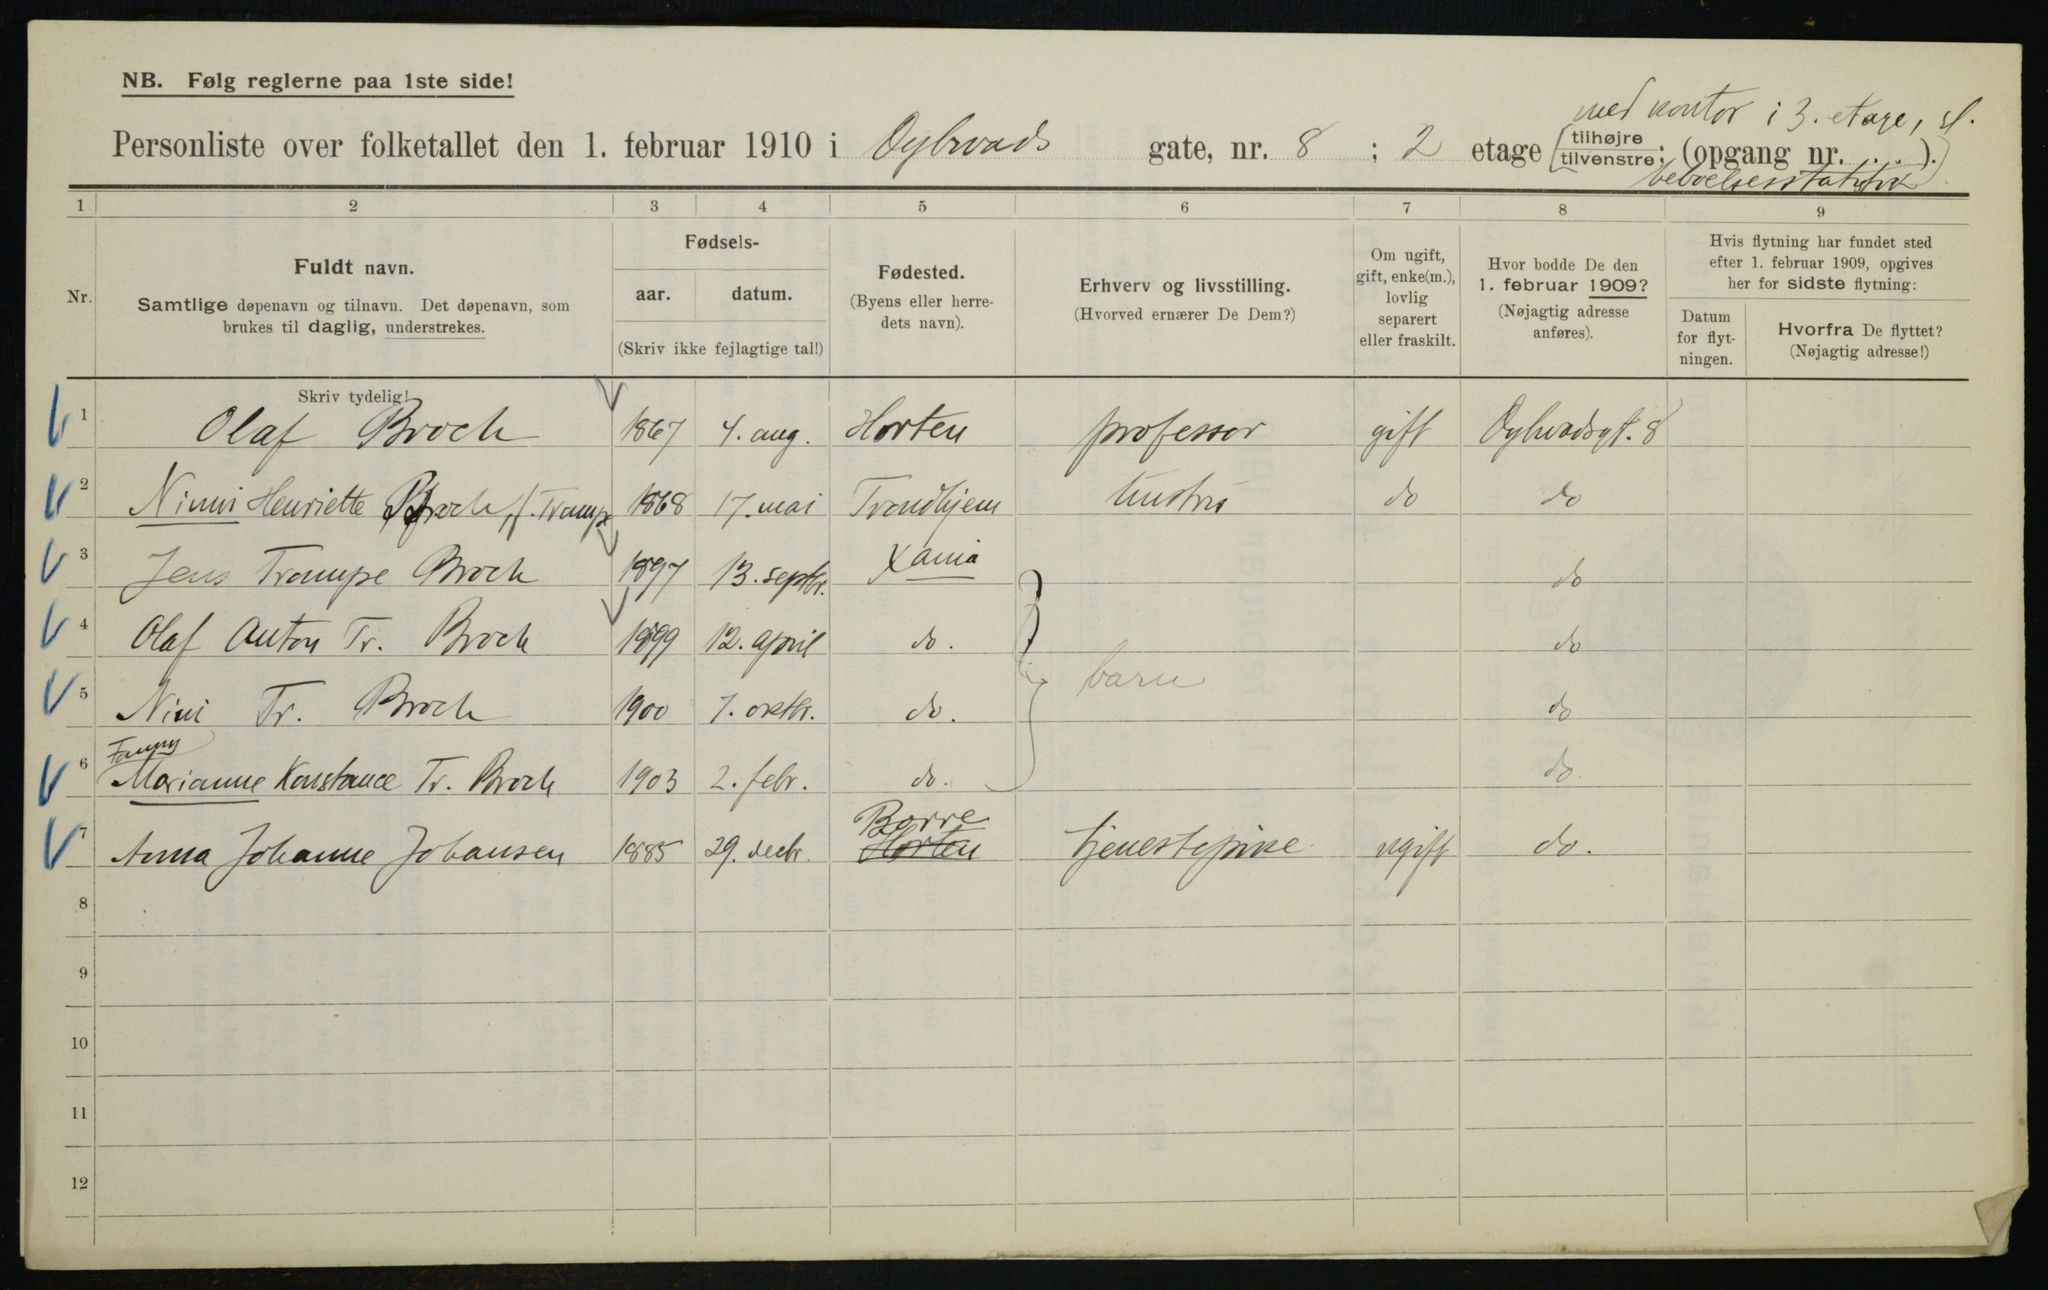 NB. Følg reglerne paa 1ste side!
med kontor i 3. etage, sl.
Personliste over folketallet den 1. februar 1910 i Oylvads gate, nr. 8 ; 2 etage [tilhøjre tilvenstre; (opgang nr. . . .).
bebvelsesstatistik
1 2 3 4 5 6 7 8 9
Nr.
Fuldt navn.
Samtlige døpenavn og tilnavn. Det døpenavn, som
brukes til daglig, understrekes.
Fødsels-
aar. datum.
(Skriv ikke fejlagtige tal!)
Fødested.
(Byens eller herre-
dets navn).
Erhverv og livsstilling.
(Hvorved ernærer De Dem?)
Om ugift,
gift, enke(m.),
lovlig
separert
eller fraskilt.
Hvor bodde De den
1. februar 1909?
(Nøjagtig adresse
anføres).
Hvis flytning har fundet sted
efter 1. februar 1909, opgives
her for sidste flytning:
Datum
for flyt-
ningen.
Hvorfra De flyttet?
(Nøjagtig adresse!)
Skriv tydelig!
1 Olaf Broch 1867 4. aug. Horten professor gift Oylvadsgt. 8
2 Ninni Henriette Broch, f. Trampe 1868 17. mai Trondhjem hustru do do
3 Jens Trampe Broch 1897 13. septbr. Xania do
4 Olaf Anton Tr. Broch 1899 12. april do. do
barn
5 Nini Tr. Broch 1900 7. oktbr. do. do
Fanny
6 Marianne Konstance Tr. Broch 1903 2. febr. do. do.
Borre
7 Anna Johanne Johansen 1885 29. decbr. Horten tjenestepike ugift do.
8
9
10
11
12